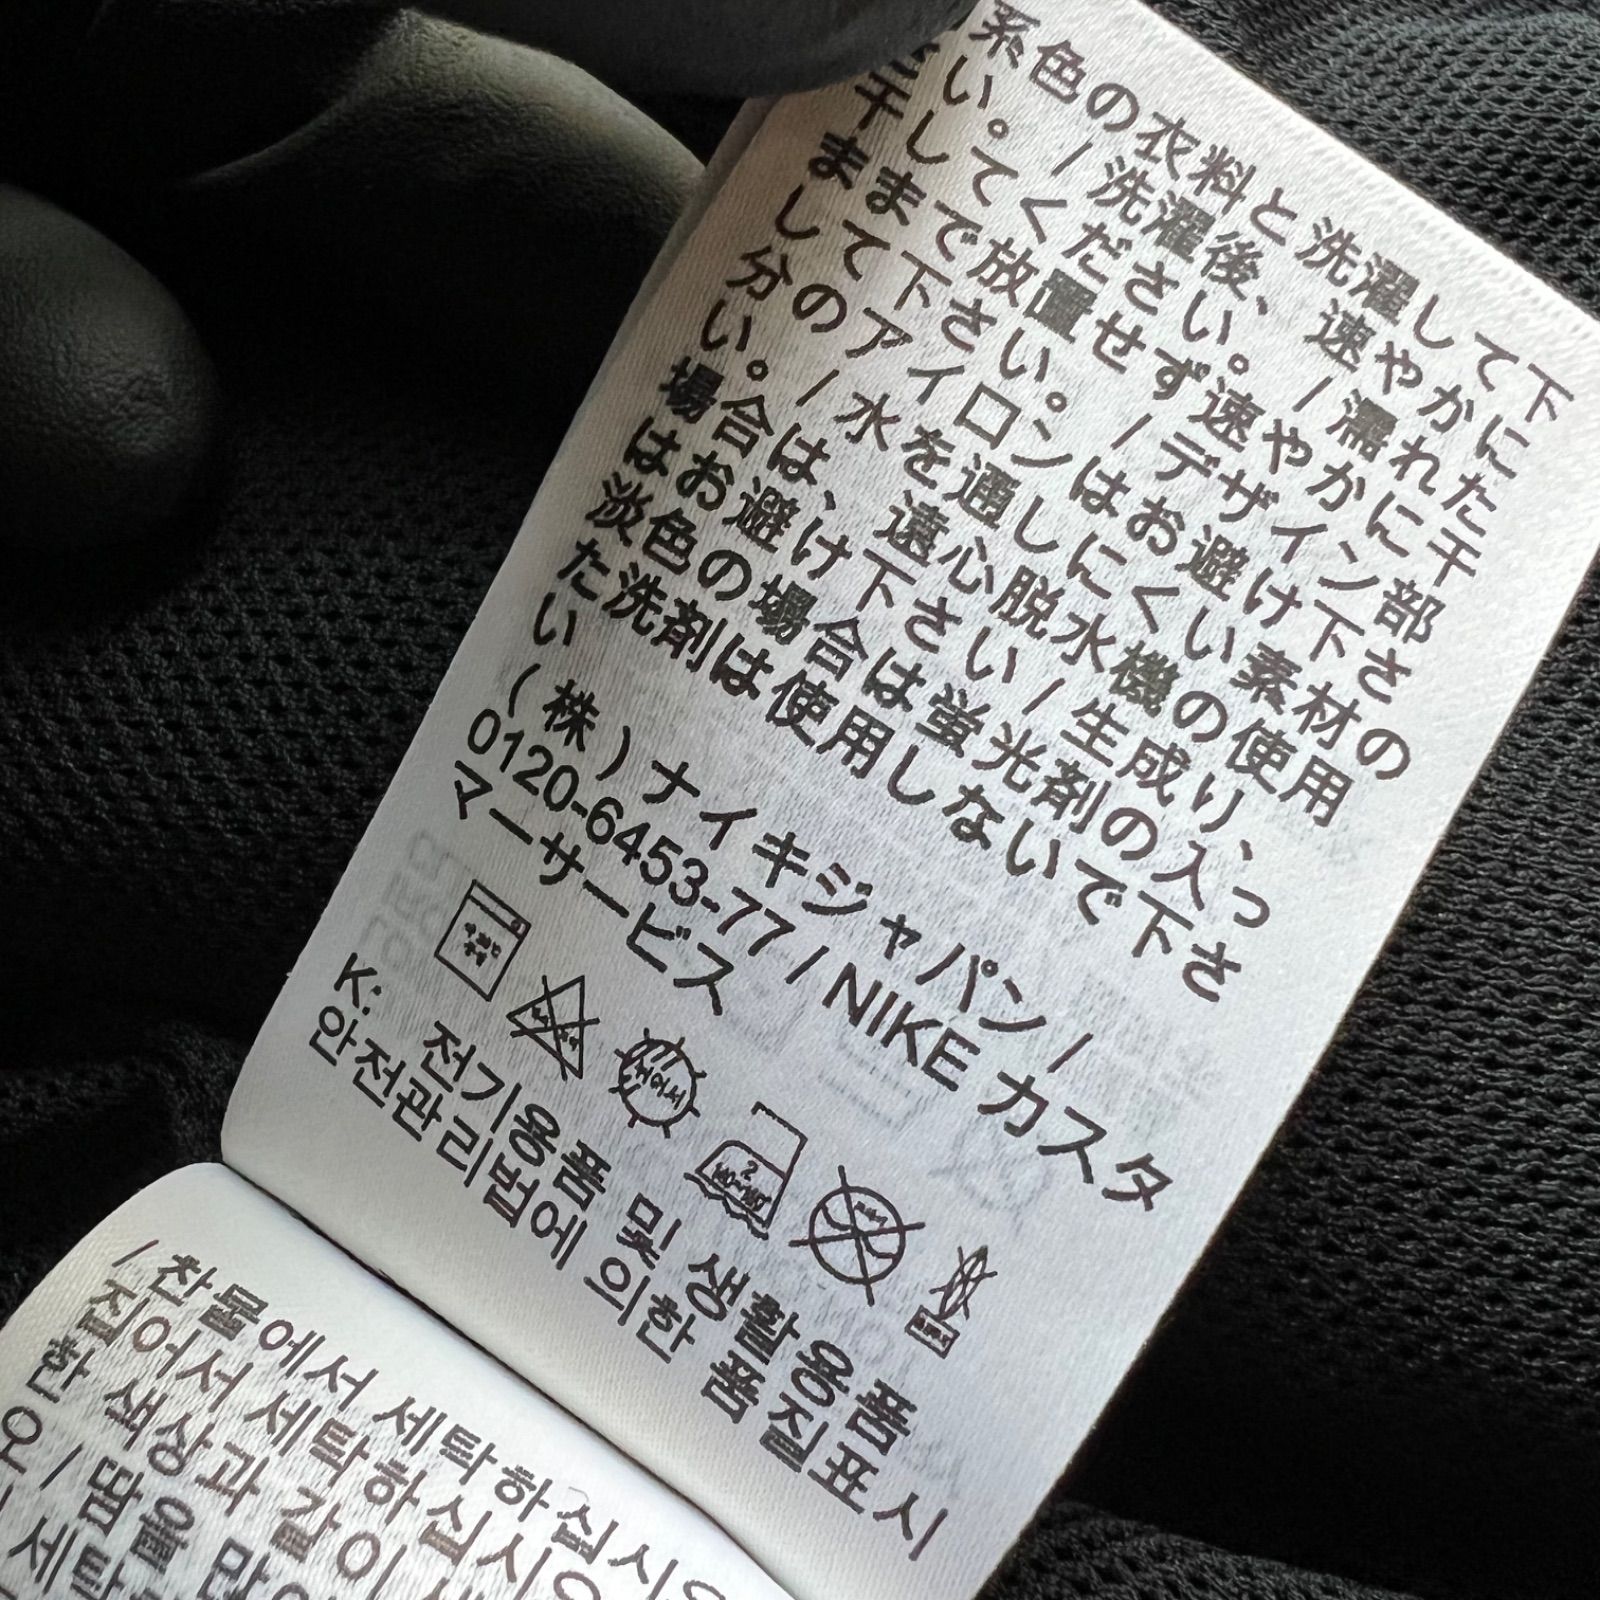 系色の衣料と洗濯して下
い。/洗濯後、速やかに
干してください。/濡れた
ままで放置せず速やかに干
して下さい。/デザイン部
分のアイロンはお避け下さ
い。/水を通しにくい素材の
場合は、遠心脱水機の使用
はお避け下さい/生成り、
淡色の場合は蛍光剤の入っ
た洗剤は使用しないで下さ
い
(株)ナイキジャパン/
0120-6453-77/NIKE カスタ
マーサービス
2
K: 전기용품 및 생활용품
안전관리법에 의한 품질표시
/찬물에서 세탁하십시오
집어서 세탁하십시오
한 색상과 같이
오/땀을 많
세탁